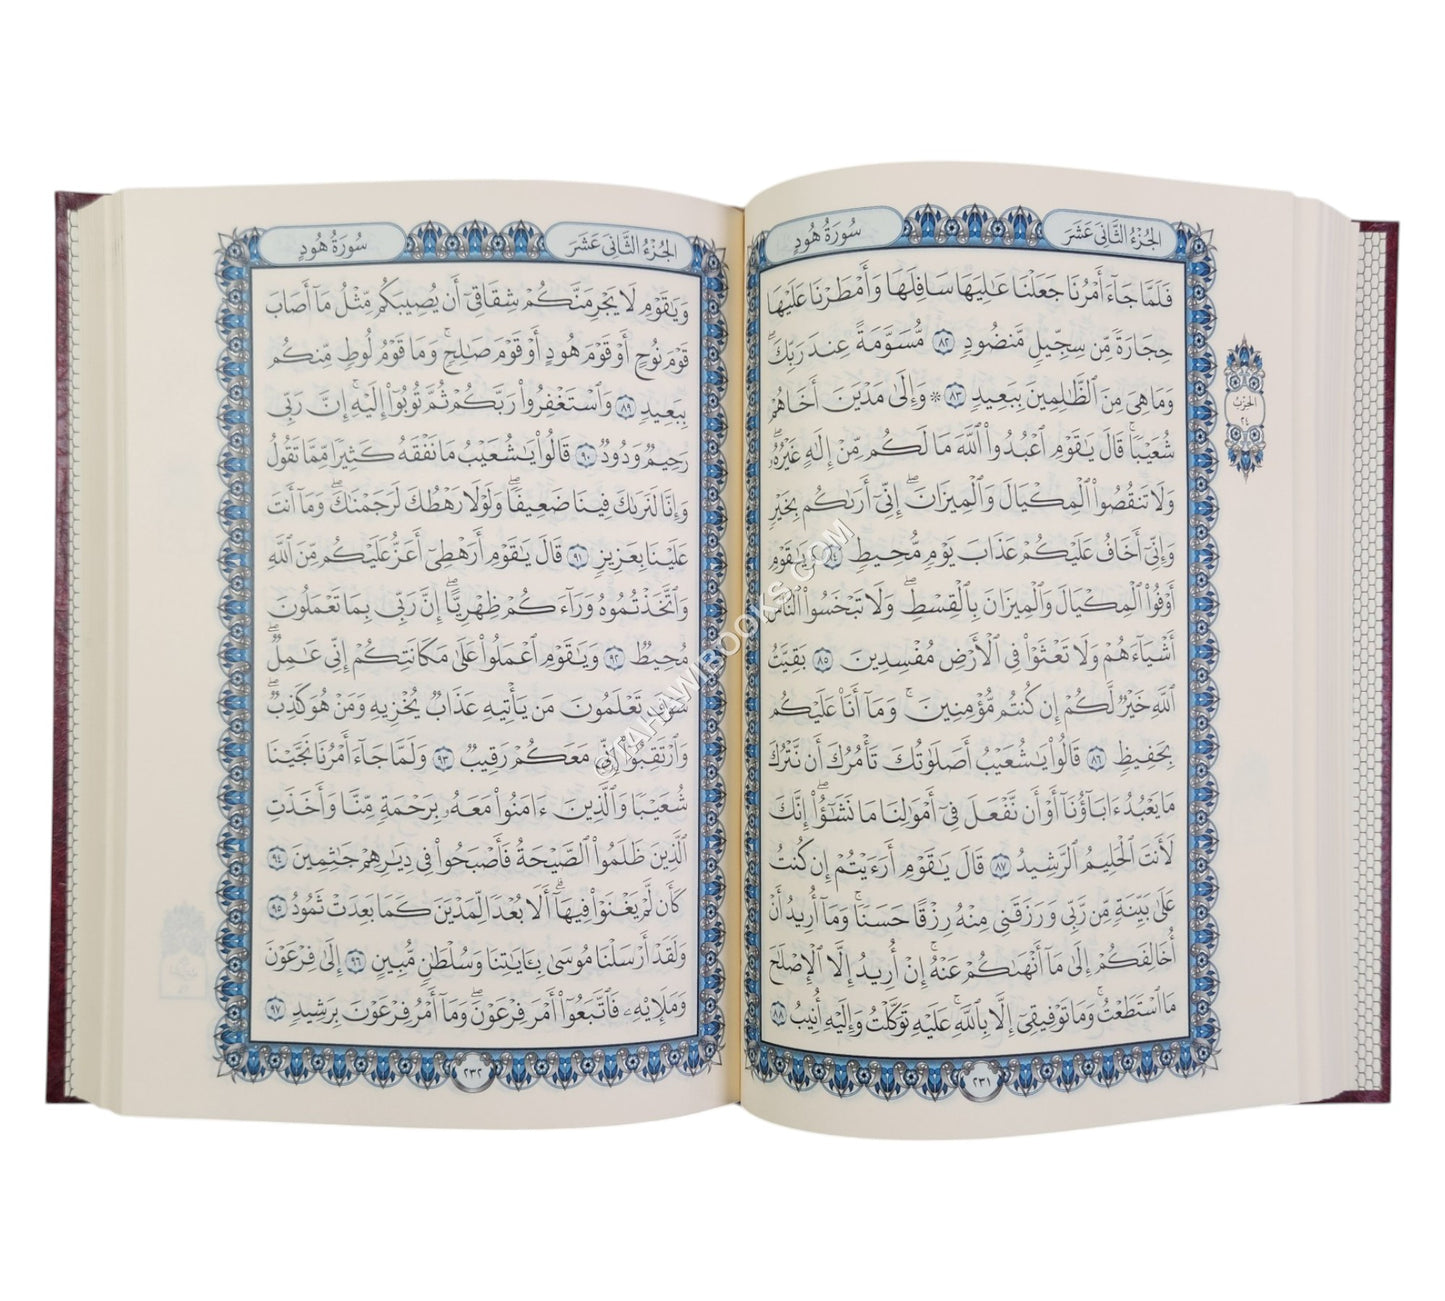 سُورَةُ هُودٍ
الجُزْءُ الثَّانِي عَشَرَ
فَلَمَّا جَآءَ أَمْرُنَا جَعَلْنَا عَٰلِيَهَا سَافِلَهَا وَأَمْطَرْنَا عَلَيْهَا
حِجَارَةً مِّن سِجِّيلٍ مَّنضُودٍ ٨٢ مُّسَوَّمَةً عِندَ رَبِّكَۖ
وَمَا هِىَ مِنَ ٱلظَّٰلِمِينَ بِبَعِيدٍ ٨٣ ۞ وَإِلَىٰ مَدْيَنَ أَخَاهُمْ
شُعَيْبًاۚ قَالَ يَٰقَوْمِ ٱعْبُدُوا۟ ٱللَّهَ مَا لَكُم مِّنْ إِلَٰهٍ غَيْرُهُۥۖ
وَلَا تَنقُصُوا۟ ٱلْمِكْيَالَ وَٱلْمِيزَانَۖ إِنِّىٓ أَرَىٰكُم بِخَيْرٍ
وَإِنِّىٓ أَخَافُ عَلَيْكُمْ عَذَابَ يَوْمٍ مُّحِيطٍ ٨٤ وَيَٰقَوْمِ
أَوْفُوا۟ ٱلْمِكْيَالَ وَٱلْمِيزَانَ بِٱلْقِسْطِۖ وَلَا تَبْخَسُوا۟ ٱلنَّاسَ
أَشْيَآءَهُمْ وَلَا تَعْثَوْا۟ فِى ٱلْأَرْضِ مُفْسِدِينَ ٨٥ بَقِيَّتُ
ٱللَّهِ خَيْرٌ لَّكُمْ إِن كُنتُم مُّؤْمِنِينَۚ وَمَآ أَنَا۠ عَلَيْكُم
بِحَفِيظٍ ٨٦ قَالُوا۟ يَٰشُعَيْبُ أَصَلَوٰتُكَ تَأْمُرُكَ أَن نَّتْرُكَ
مَا يَعْبُدُ ءَابَآؤُنَآ أَوْ أَن نَّفْعَلَ فِىٓ أَمْوَٰلِنَا مَا نَشَٰٓؤُا۟ۖ إِنَّكَ
لَأَنتَ ٱلْحَلِيمُ ٱلرَّشِيدُ ٨٧ قَالَ يَٰقَوْمِ أَرَءَيْتُمْ إِن كُنتُ
عَلَىٰ بَيِّنَةٍ مِّن رَّبِّى وَرَزَقَنِى مِنْهُ رِزْقًا حَسَنًاۚ وَمَآ أُرِيدُ أَنْ
أُخَالِفَكُمْ إِلَىٰ مَآ أَنْهَىٰكُمْ عَنْهُۚ إِنْ أُرِيدُ إِلَّا ٱلْإِصْلَٰحَ
مَا ٱسْتَطَعْتُۚ وَمَا تَوْفِيقِىٓ إِلَّا بِٱللَّهِۚ عَلَيْهِ تَوَكَّلْتُ وَإِلَيْهِ أُنِيبُ ٨٨
٢٣١
الحِزْبُ
٢٤
سُورَةُ هُودٍ
الجُزْءُ الثَّانِي عَشَرَ
وَيَٰقَوْمِ لَا يَجْرِمَنَّكُمْ شِقَاقِىٓ أَن يُصِيبَكُم مِّثْلُ مَآ أَصَابَ
قَوْمَ نُوحٍ أَوْ قَوْمَ هُودٍ أَوْ قَوْمَ صَٰلِحٍۚ وَمَا قَوْمُ لُوطٍ مِّنكُم
بِبَعِيدٍ ٨٩ وَٱسْتَغْفِرُوا۟ رَبَّكُمْ ثُمَّ تُوبُوٓا۟ إِلَيْهِۚ إِنَّ رَبِّى
رَحِيمٌ وَدُودٌ ٩٠ قَالُوا۟ يَٰشُعَيْبُ مَا نَفْقَهُ كَثِيرًا مِّمَّا تَقُولُ
وَإِنَّا لَنَرَىٰكَ فِينَا ضَعِيفًاۖ وَلَوْلَا رَهْطُكَ لَرَجَمْنَٰكَۖ وَمَآ أَنتَ
عَلَيْنَا بِعَزِيزٍ ٩١ قَالَ يَٰقَوْمِ أَرَهْطِىٓ أَعَزُّ عَلَيْكُم مِّنَ ٱللَّهِ
وَٱتَّخَذْتُمُوهُ وَرَآءَكُمْ ظِهْرِيًّاۖ إِنَّ رَبِّى بِمَا تَعْمَلُونَ
مُحِيطٌ ٩٢ وَيَٰقَوْمِ ٱعْمَلُوا۟ عَلَىٰ مَكَانَتِكُمْ إِنِّى عَٰمِلٌۖ
سَوْفَ تَعْلَمُونَ مَن يَأْتِيهِ عَذَابٌ يُخْزِيهِ وَمَنْ هُوَ كَٰذِبٌۖ
وَٱرْتَقِبُوٓا۟ إِنِّى مَعَكُمْ رَقِيبٌ ٩٣ وَلَمَّا جَآءَ أَمْرُنَا نَجَّيْنَا
شُعَيْبًا وَٱلَّذِينَ ءَامَنُوا۟ مَعَهُۥ بِرَحْمَةٍ مِّنَّا وَأَخَذَتِ
ٱلَّذِينَ ظَلَمُوا۟ ٱلصَّيْحَةُ فَأَصْبَحُوا۟ فِى دِيَٰرِهِمْ جَٰثِمِينَ ٩٤
كَأَن لَّمْ يَغْنَوْا۟ فِيهَآۗ أَلَا بُعْدًا لِّمَدْيَنَ كَمَا بَعِدَتْ ثَمُودُ ٩٥
وَلَقَدْ أَرْسَلْنَا مُوسَىٰ بِـَٔايَٰتِنَا وَسُلْطَٰنٍ مُّبِينٍ ٩٦ إِلَىٰ فِرْعَوْنَ
وَمَلَإِي۟هِۦ فَٱتَّبَعُوٓا۟ أَمْرَ فِرْعَوْنَۖ وَمَآ أَمْرُ فِرْعَوْنَ بِرَشِيدٍ ٩٧
٢٣٢
©TAHAWIBOOKS.COM